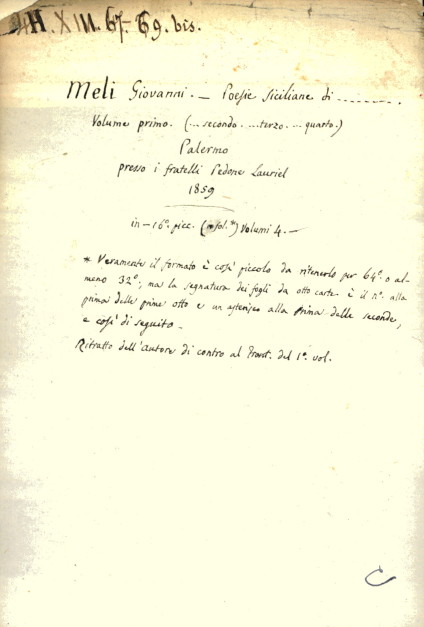 H. XIII. 67-69. bis.
Meli Giovanni. — Poesie Siciliane di ........
Volume primo. (... secondo ... terzo ... quarto.)
Palermo
presso i fratelli Pedone Lauriel
1859
in-16°. picc. ( ) Volumi 4. —
* Veramente il formato è così piccolo da ritenerlo per 64°. o al-
meno 32°; ma la segnatura dei fogli da otto carte è il n°. alla
prima delle prime otto e un asterisco alla prima delle seconde,
e così di seguito —
Ritratto dell'autore di contro al Front. del 1°. vol.
C